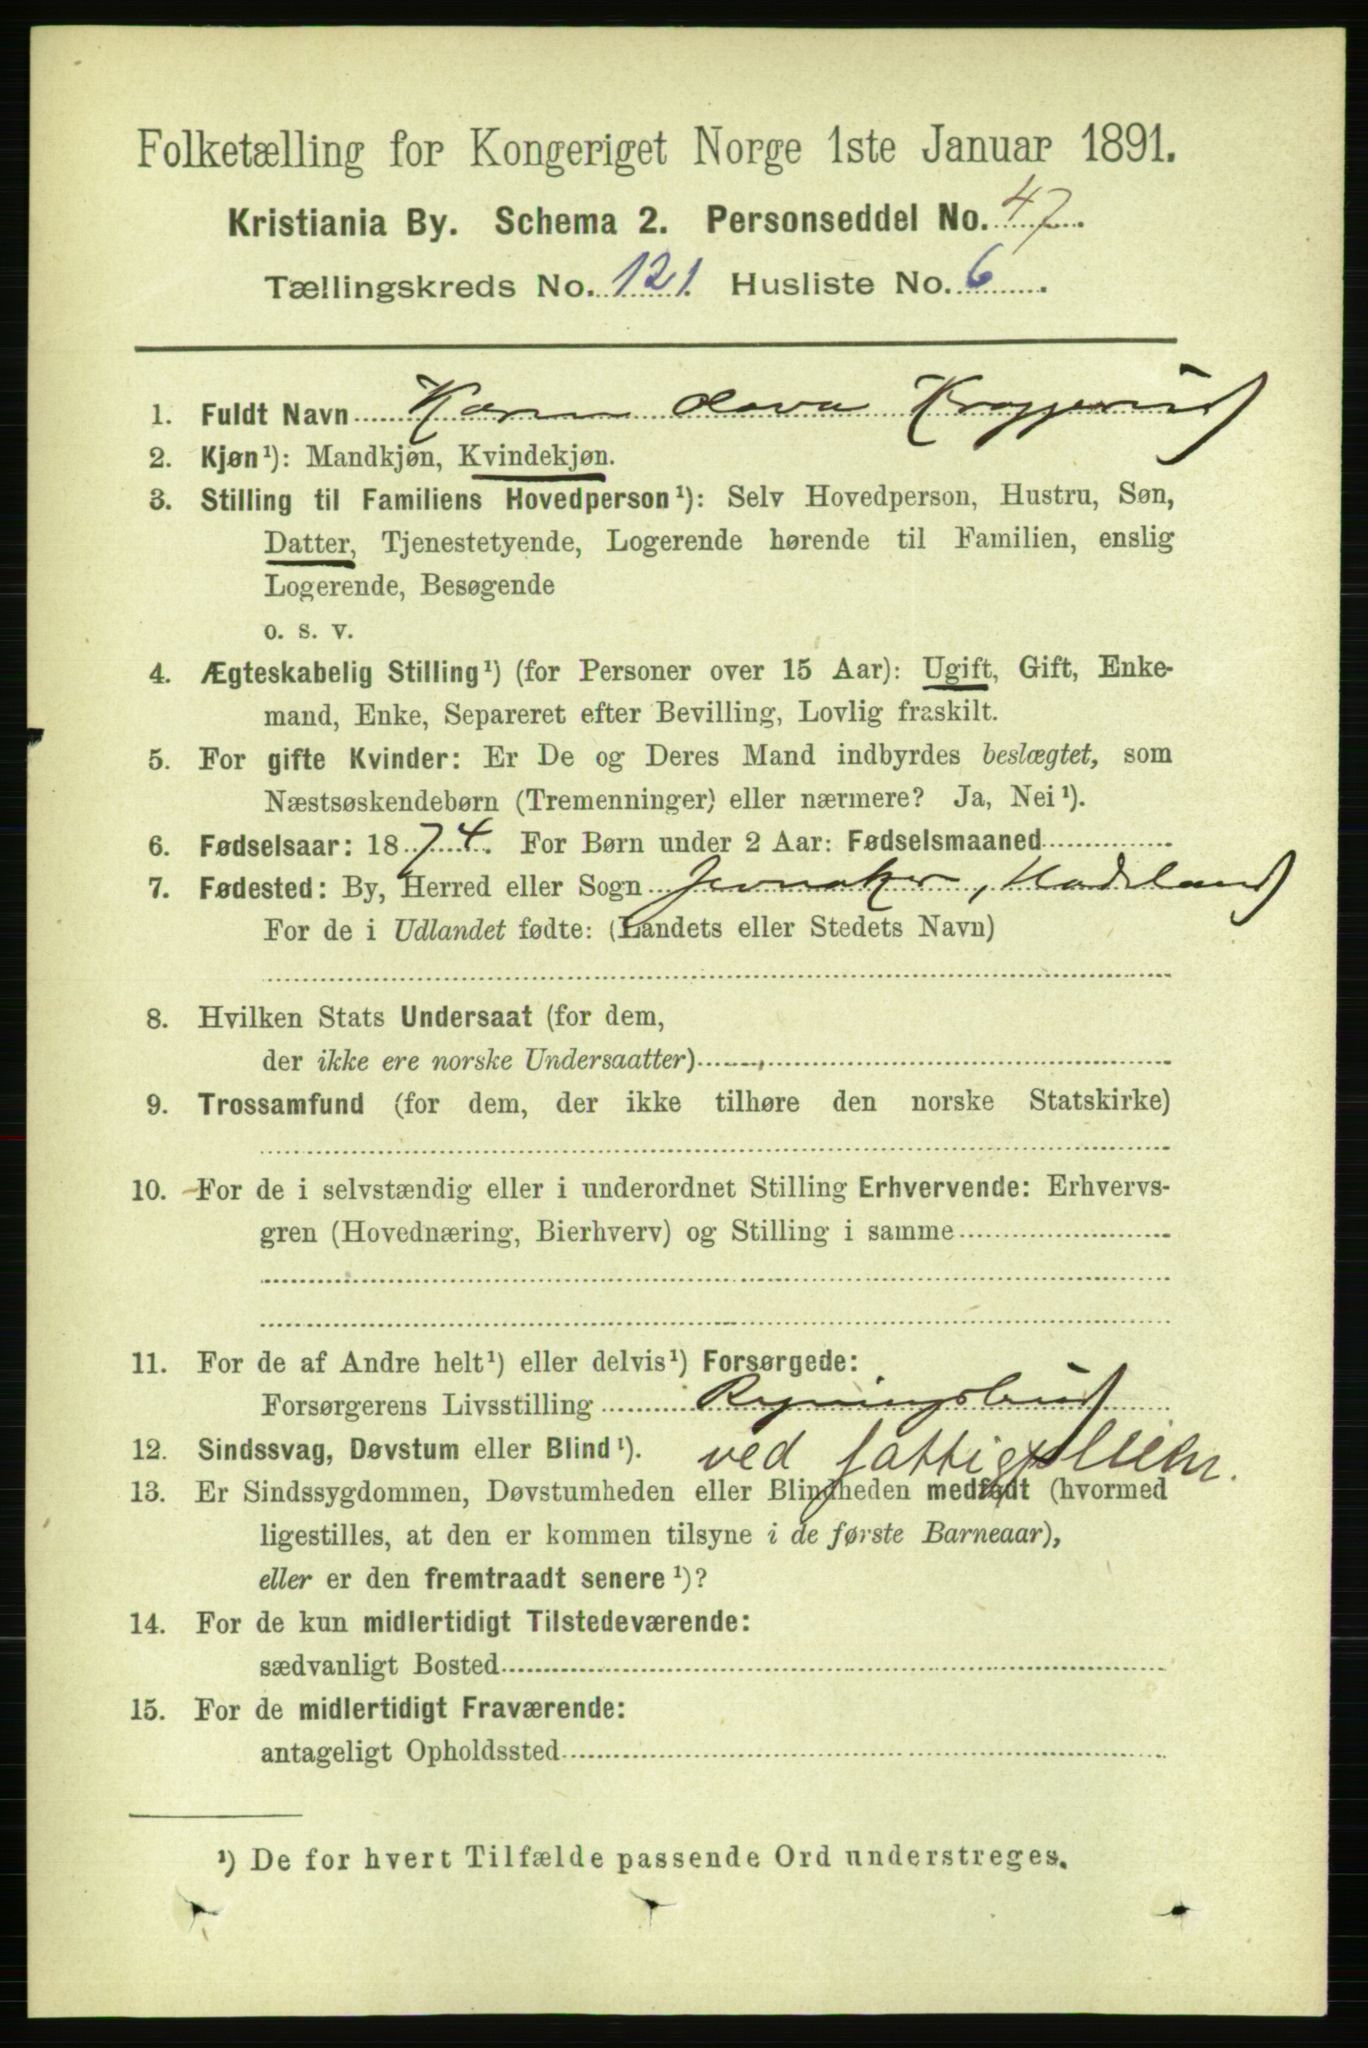 Folketælling for Kongeriget Norge 1ste Januar 1891.
Kristiania By. Schema 2. Personseddel No. 47.
Tællingskreds No. 121. Husliste No. 6.
1. Fuldt Navn Karen
2. Kjøn¹): Mandkjøn, Kvindekjøn.
3. Stilling til Familiens Hovedperson¹): Selv Hovedperson, Hustru, Søn,
Datter, Tjenestetyende, Logerende hørende til Familien, enslig
Logerende, Besøgende
o. s. v.
4. Ægteskabelig Stilling¹) (for Personer over 15 Aar): Ugift, Gift, Enke-
mand, Enke, Separeret efter Bevilling, Lovlig fraskilt.
5. For gifte Kvinder: Er De og Deres Mand indbyrdes beslægtet, som
Næstsøskendebørn (Tremenninger) eller nærmere? Ja, Nei¹).
6. Fødselsaar: 1874. For Børn under 2 Aar: Fødselsmaaned
7. Fødested: By, Herred eller Sogn Jevnaker, Hadeland
For de i Udlandet fødte: (Landets eller Stedets Navn)
8. Hvilken Stats Undersaat (for dem,
der ikke ere norske Undersaatter)
9. Trossamfund (for dem, der ikke tilhøre den norske Statskirke)
10. For de i selvstændig eller i underordnet Stilling Erhvervende: Erhvervs-
gren (Hovednæring, Bierhverv) og Stilling i samme
11. For de af Andre helt¹) eller delvis¹) Forsørgede:
Forsørgerens Livsstilling Regningsbud
12. Sindssvag, Døvstum eller Blind¹). ved
13. Er Sindssygdommen, Døvstumheden eller Blindheden medfødt (hvormed
ligestilles, at den er kommen tilsyne i de første Barneaar),
eller er den fremtraadt senere¹)?
14. For de kun midlertidigt Tilstedeværende:
sædvanligt Bosted
15. For de midlertidigt Fraværende:
antageligt Opholdssted
¹) De for hvert Tilfælde passende Ord understreges.